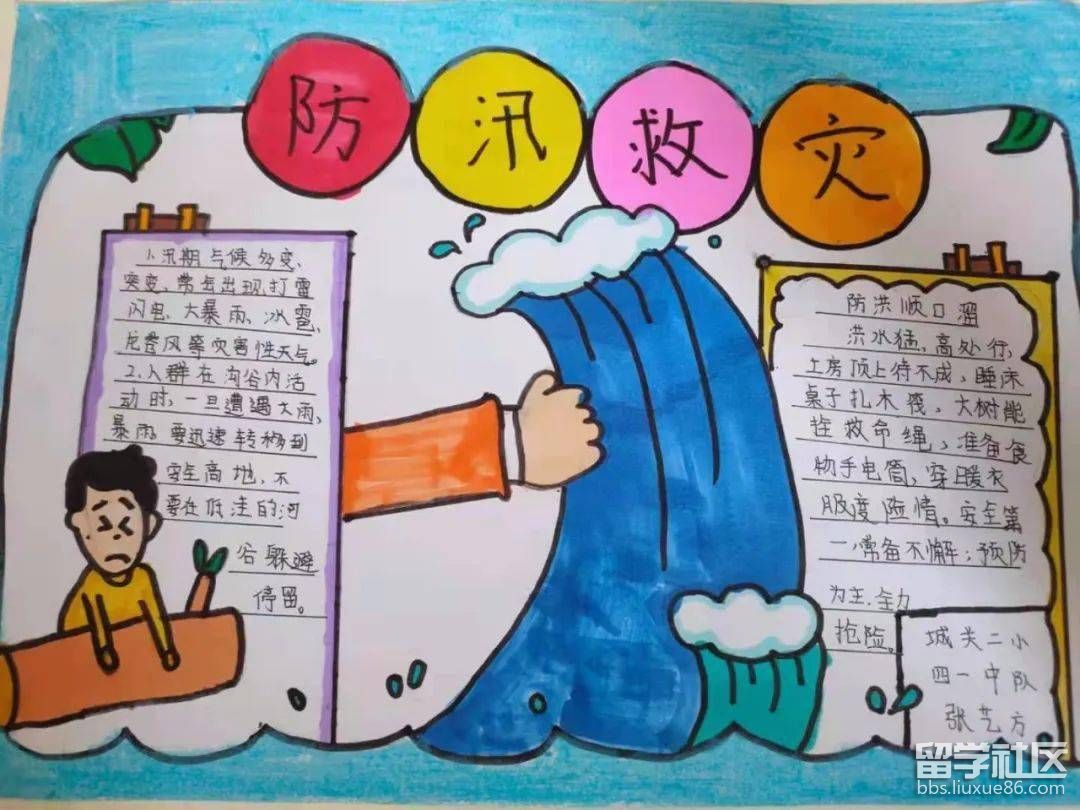 防汛救灾
1.汛期气候多变、
突变,常年出现打雷
闪电、大暴雨、冰雹、
龙卷风等灾害性天气。
2.人群在沟谷内活
动时,一旦遭遇大雨,
暴雨,要迅速转移到
安全高地,不
要在低洼的河
谷躲避
停留。
防洪顺口溜
洪水猛,高处行,
土房顶上待不成,睡床
桌子扎木筏,大树能
拴救命绳,准备食
物手电筒,穿暖衣
服度险情。安全第
一,常备不懈;预防
为主,全力
抢险。
城关二小
四一中队
张艺方
留学社区
bbs.liuxue86.com